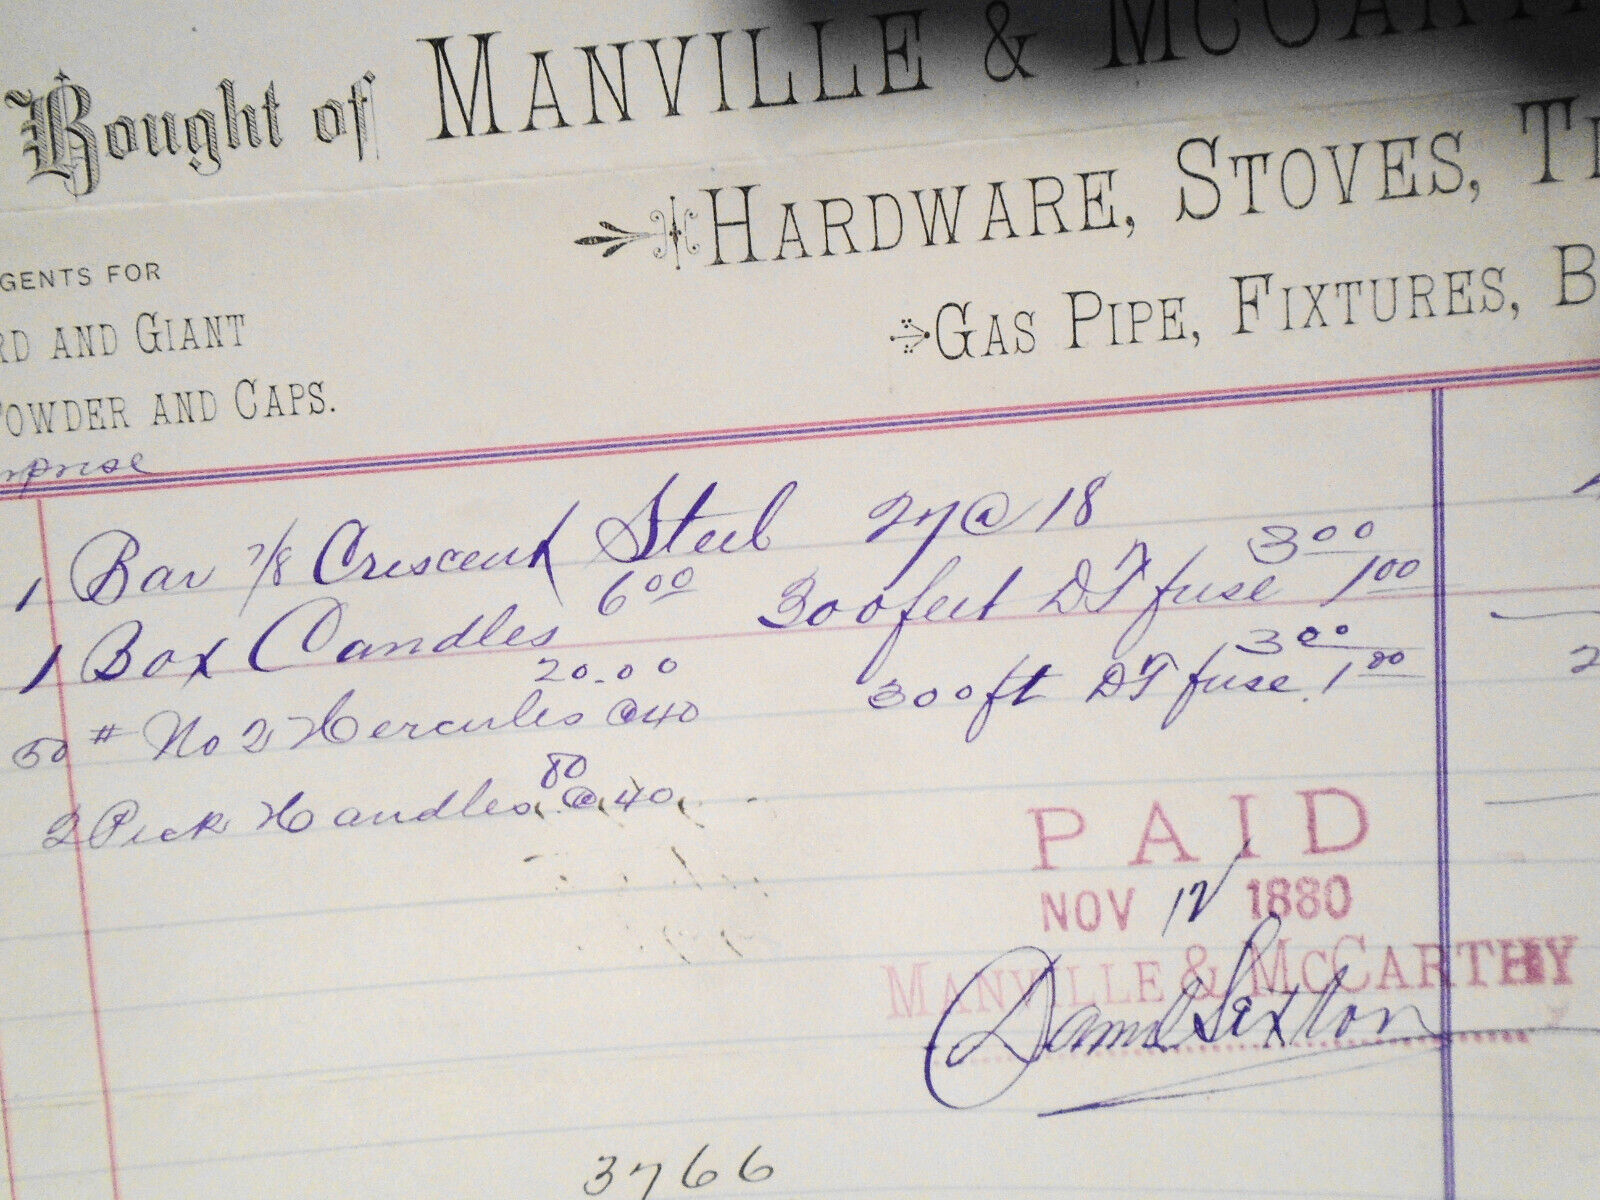 Bought of MANVILLE & MCCARTH
HARDWARE, STOVES, TI
GENTS FOR
RD AND GIANT
GAS PIPE, FIXTURES, B
POWDER AND CAPS.
1 Bar 7/8 Crescent Steel 27 @ 18
1 Box Candles 6 00 300 feet DT fuse 3 00 1 00
50 # No 2 Hercules 20.00 @ 40 300 ft DT fuse. 3 00 1 00
2 Pick Handles 80 @ 40
PAID
NOV 12 1880
MANVILLE & MCCARTHY
Danl Sexton
3766